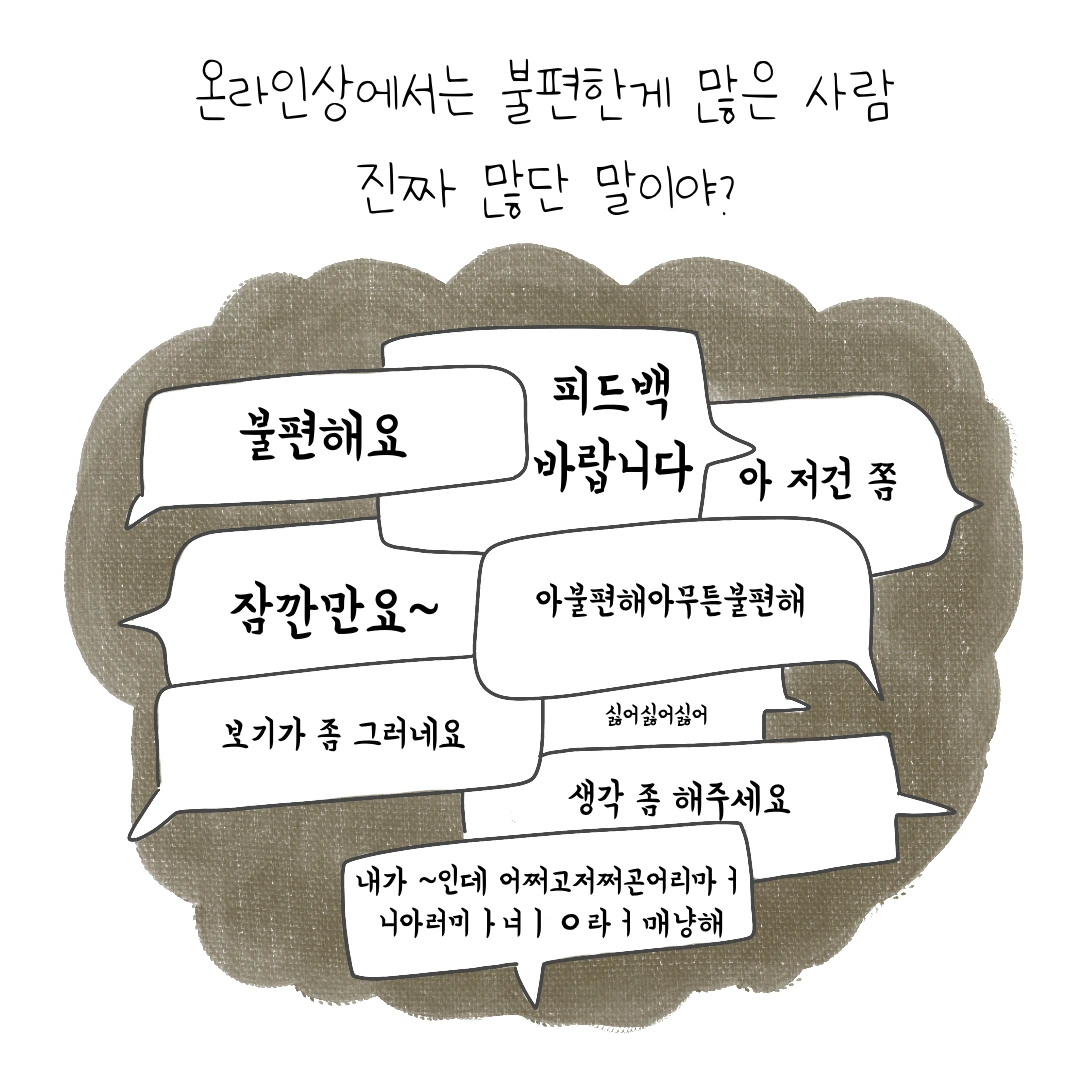 온라인상에서는 불편한게 많은 사람
진짜 많단 말이야?
피드백
바랍니다
불편해요
아 저건 쫌
잠깐만요~
아불편해아무튼불편해
싫어싫어싫어
보기가 좀 그러네요
생각 좀 해주세요
내가 ~인데 어쩌고저쩌곤어리마ㅓ
니아러미ㅏ너ㅣㅇ라ㅓ매냥해